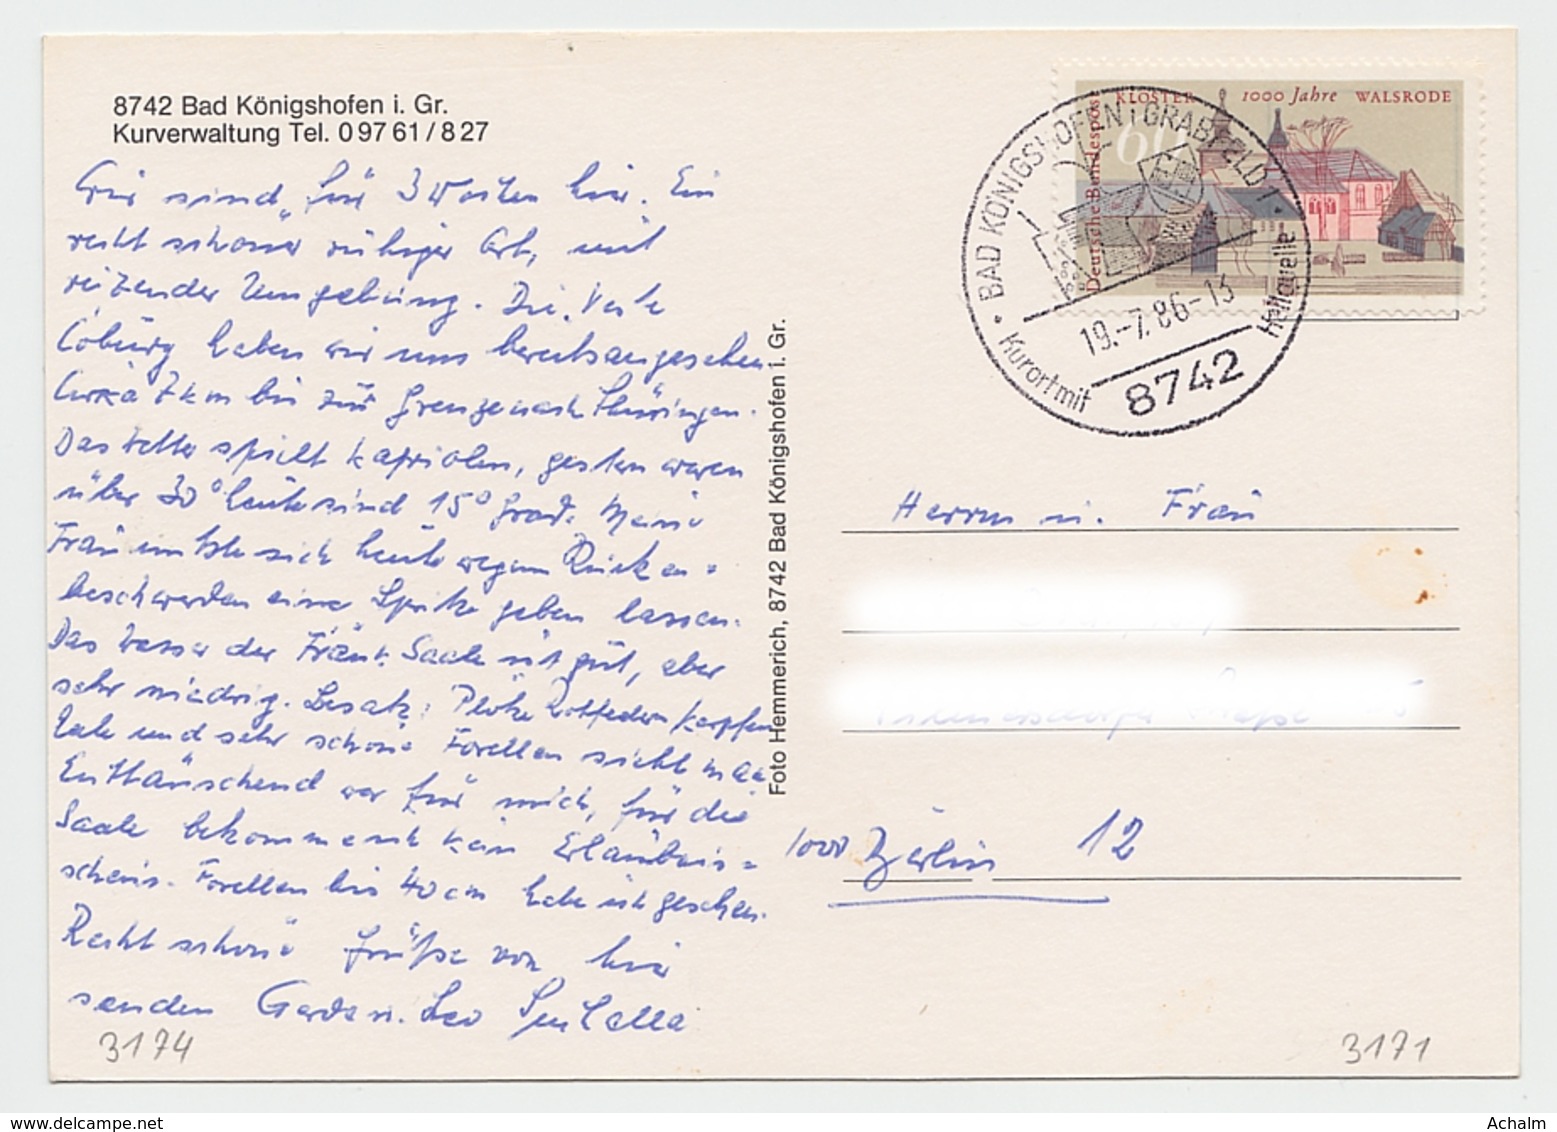 8742 Bad Königshofen i. Gr.
Kurverwaltung Tel. 0 97 61 / 8 27
Wir sind für 3 Wochen hier. Ein
recht schöner ruhiger Ort, mit
reizender Umgebung. Die Veste
Coburg haben wir uns bereits angesehen
Cirka 7 km bis zur Grenze nach Thüringen.
Das Wetter spielt Kapriolen, gestern waren
über 30° heute sind 15° Grad. Meine
Frau mußte sich heute wegen Rücken=
beschwerden eine Spritze geben lassen.
Das Wasser der Fränk. Saale ist gut, aber
sehr niedrig. Besatz: Plötze Rotfedern Karpfen
Aale und sehr schöne Forellen sieht man
Enttäuschend war für mich, für die
Saale bekommt kein Erlaubnis=
schein. Forellen bis 40 cm habe ich gesehen.
Recht schöne Grüße von hier
senden Gerda u. Leo
3174
Foto Hemmerich, 8742 Bad Königshofen i. Gr.
KLOSTER 1000 Jahre WALSRODE
Deutsche Bundespost
60
BAD KÖNIGSHOFEN I GRABFELD 1
19.-7.86-13
8742
Kurort mit Heilquelle
Herrn u. Frau
1000 Berlin 12
3171
www.delcampe.net
Achalm